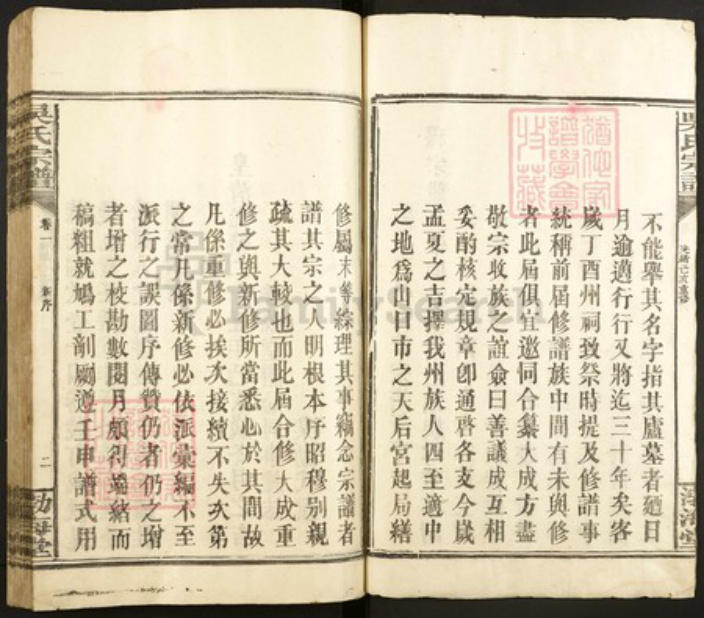 吳氏宗譜
不能舉其名字指其廬墓者廼日
月逾邁行行又將迄三十年矣客
歲丁酉州祠致祭時提及修譜事
統稱前屆修譜族中間有未與修
者此屆俱宜邀同合纂大成方盡
敬宗收族之誼僉曰善議成互相
妥酌核定規章卽通啓各支今歲
孟夏之吉擇我州族人四至適中
之地爲山口市之天后宮起局繕
修屬末等綜理其事竊念宗譜者
譜其宗之人明根本序昭穆别親
疏其大較也而此屆合修大成重
修之與新修所當悉心於其間故
凡係重修必挨次接續不失次第
之常凡係新修必依派彙編不至
派行之誤圖序傳贊仍者仍之增
者增之校勘數閱月頗得端緒而
稿粗就鳩工剞劂遵壬申譜式用
吳氏宗譜
卷一
新序
二
渤海堂
FamilySearch
譜學會
收藏